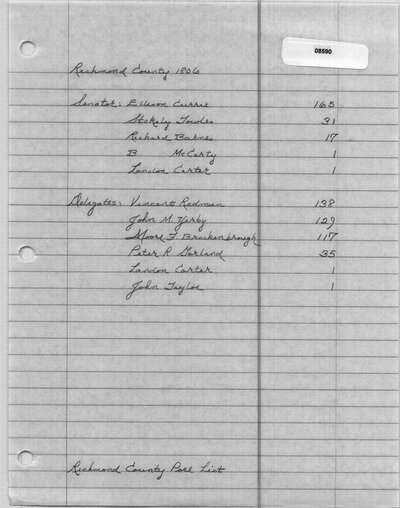 08590
Richmond County 1806
Senator: Ellison Currie 165
Stokely Towles 31
Richard Barnes 17
B McCarty 1
Landon Carter 1
Delegates: Vincent Redman 138
John M. Yerby 129
Moore F Brockenbrough 117
Peter R Garland 35
Landon Carter 1
John Tayloe 1
Richmond County Poll List